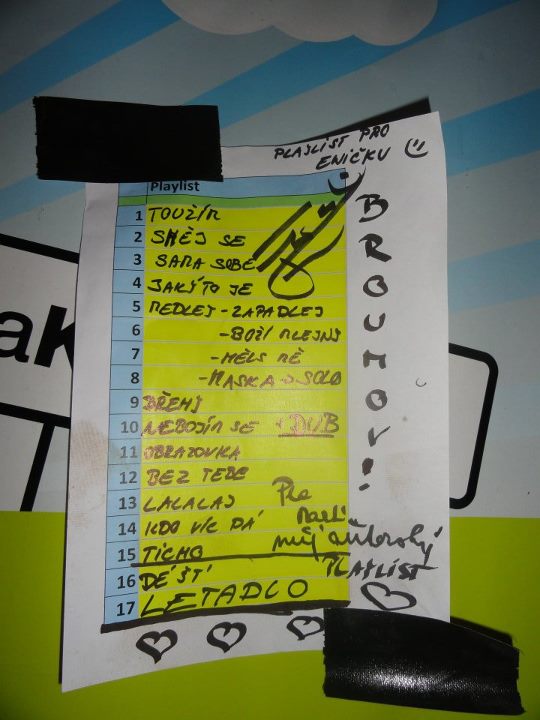 PLAYLIST PRO
ENIČKU
Playlist
1 TOUŽÍM
2 SMĚJ SE
3 SAMA SOBĚ
4 JAKÝ TO JE
5 MEDLEJ - ZAPADLEJ
6 - BOŽÍ MLEJNY
7 - MĚLS MĚ
8 - MASKA -> SOLO
9 BŘEHY
10 NEBOJÍM SE + DUB
11 OBRAZOVKA
12 BEZ TEBE
13 LALALAJ
14 KDO VÍC DÁ
15 TICHO
16 DÉŠTÍ
17 LETADLO
BROUMOV!
můj autorský
PLAYLIST
ak